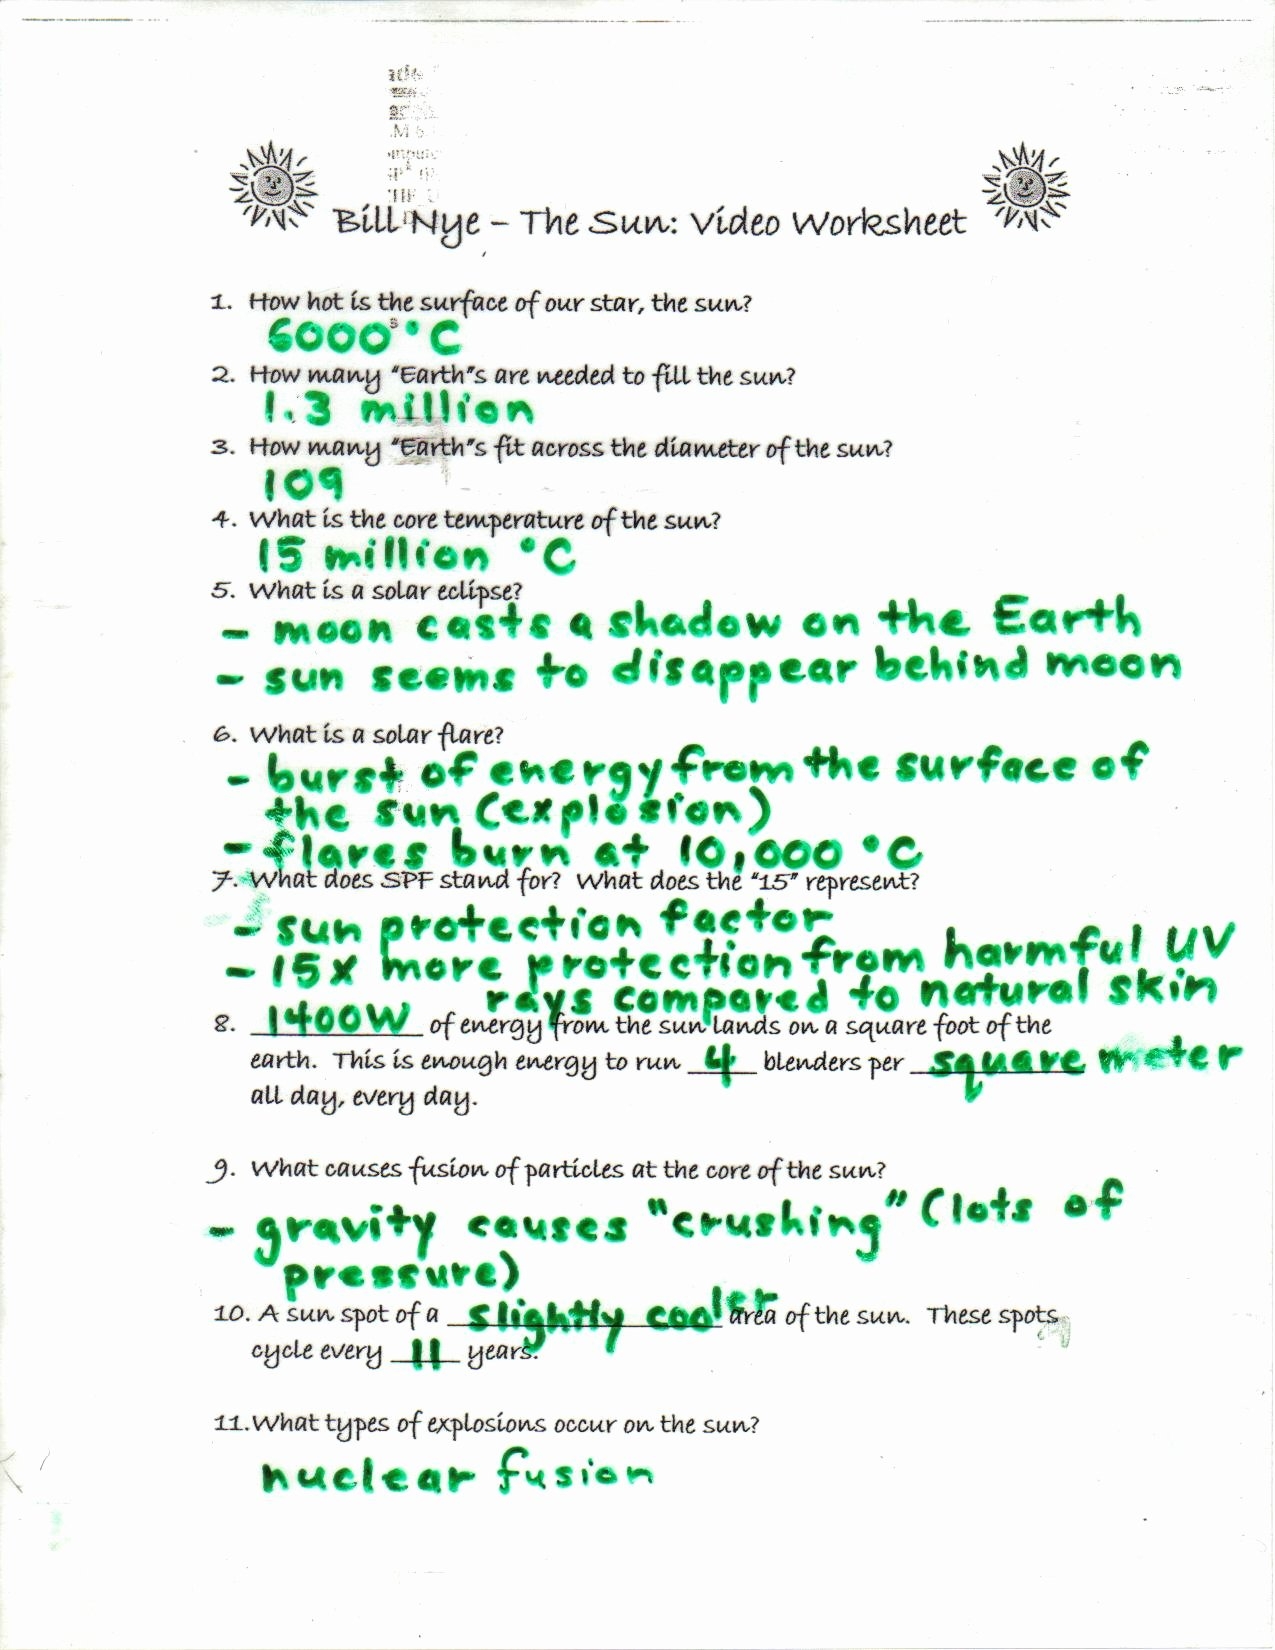 Bill Nye – The Sun: Video Worksheet
1. How hot is the surface of our star, the sun?
6000°C
2. How many "Earth"s are needed to fill the sun?
1.3 million
3. How many "Earth"s fit across the diameter of the sun?
109
4. What is the core temperature of the sun?
15 million °C
5. What is a solar eclipse?
- moon casts a shadow on the Earth
- sun seems to disappear behind moon
6. What is a solar flare?
- burst of energy from the surface of
the sun (explosion)
- flares burn at 10,000 °C
7. What does SPF stand for? What does the "15" represent?
- sun protection factor
- 15x more protection from harmful UV
rays compared to natural skin
8. 1400W of energy from the sun lands on a square foot of the
earth. This is enough energy to run 4 blenders per square meter
all day, every day.
9. What causes fusion of particles at the core of the sun?
- gravity causes "crushing" (lots of
pressure)
10. A sun spot of a slightly cooler area of the sun. These spots
cycle every 11 years.
11. What types of explosions occur on the sun?
nuclear fusion